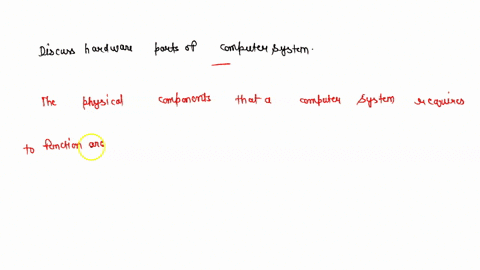 Discuss hardware parts of computer system.
The physical components that a computer system requires
to function are